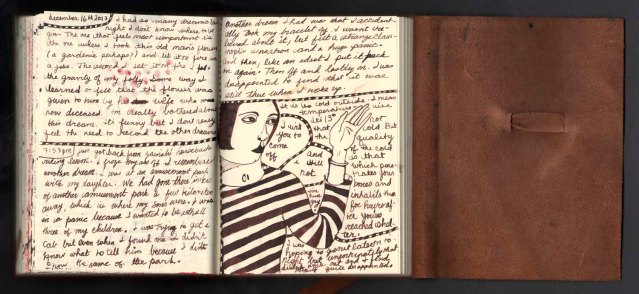 December 16th 2013
I had so many dreams last
night I don't know where to be
gin. The one that feels most important is
the one where I took this old man's flower
(a gardenia perhaps?) and let it on fire as
a joke. The second I set it on fire I felt
the gravity of my folly some way I
learned or felt that the flower was
given to him by his wife who was
now deceased. I'm really bothered by
this dream. It's funny but I don't really
feel the need to record the other dreams
7:53pm just got back from horseback
riding lesson. I froze my ass off. I remembered
another dream. I was at an amusement park
with my daughter. We had gone there instead
of another amusement park a few kilometers
away which is where my sons were. I was
in a panic because I wanted to be with all
three of my children. I was trying to get a
cab but even when I found one I didn't
know what to tell him because I didn't
know the name of the park.
another dream I had was that I accident
ally took my bracelet off. I wasn't
about it, but felt a strange
and a huge panic.
and then, like an idiot I put it back
on again. Then off and lastly on. I was
disappointed to find that it was
still there when I woke up.
It is so cold outside. I mean
temperature wise
it's 13° not
that cold But
the quality
of the cold
is that
which pene
trates your
bones and
inhabits them
for hours af
ter you've
reached shel
ter.
I will
you to
come
off
and
I will
not
I was
hoping to
night but
and I found
quite disappointed.